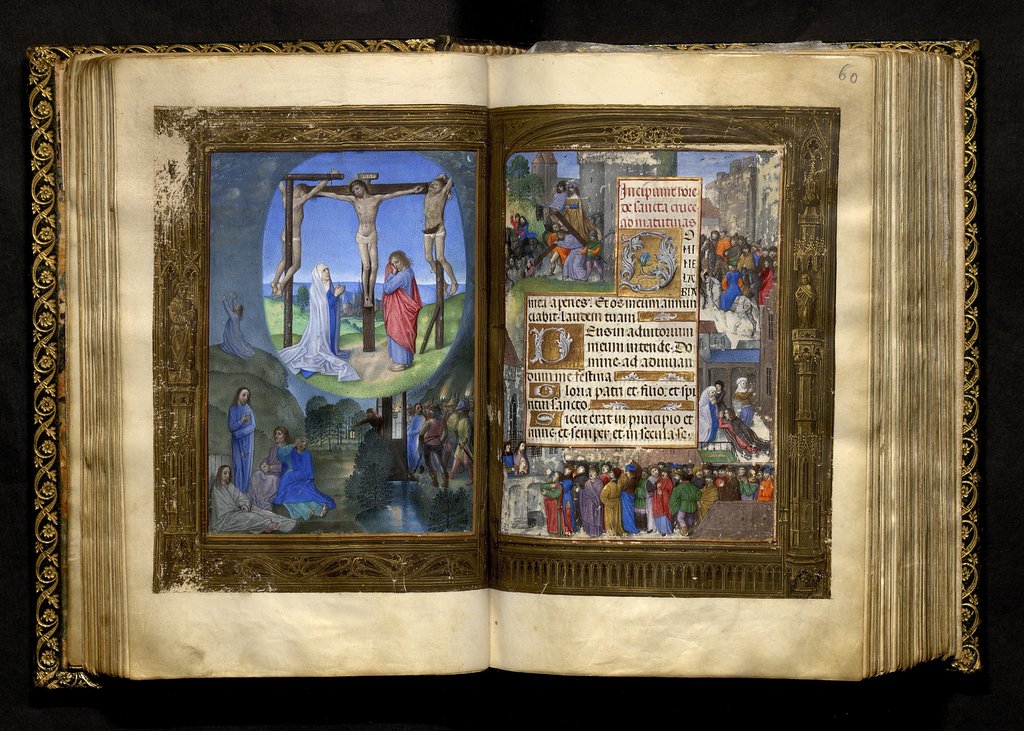 60
Incipiunt hore
de sancta cruce
ad matutinas
D
O
MI
NE LA
BIA
mea aperies. Et os meum annun
ciabit laudem tuam
Deus in adiutorium
meum intende. Do
mine ad adiuuan
dum me festina
Gloria patri et filio: et spi
ritui sancto
Sicut erat in principio et
nunc et semper et in secula se: